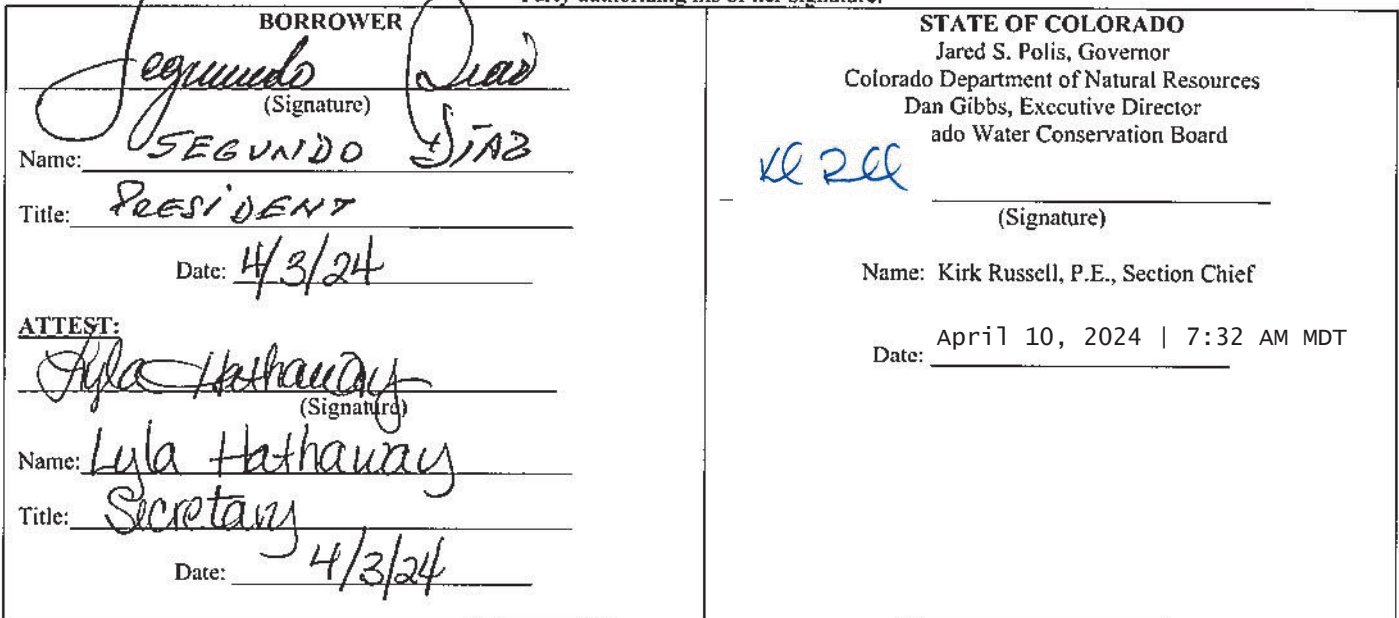 Party authorizing his or her signature.
BORROWER
Segundo Diaz
(Signature)
Name: SEGUNDO DÍAZ
Title: PRESIDENT
Date: 4/3/24
ATTEST:
Lyla Hathaway
(Signature)
Name: Lyla Hathaway
Title: Secretary
Date: 4/3/24
STATE OF COLORADO
Jared S. Polis, Governor
Colorado Department of Natural Resources
Dan Gibbs, Executive Director
ado Water Conservation Board
(Signature)
Name: Kirk Russell, P.E., Section Chief
Date: April 10, 2024 | 7:32 AM MDT